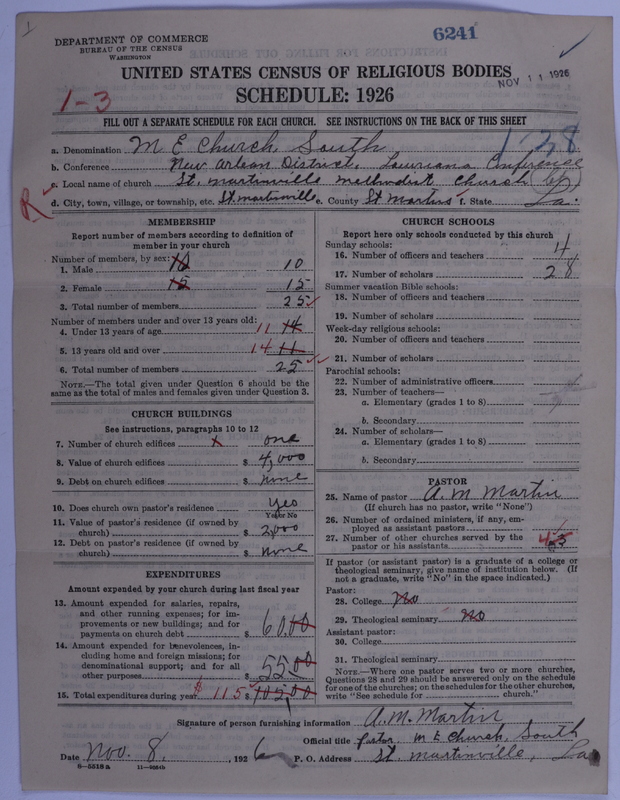 1
6241
DEPARTMENT OF COMMERCE
BUREAU OF THE CENSUS
WASHINGTON
UNITED STATES CENSUS OF RELIGIOUS BODIES
NOV 11 1926
SCHEDULE: 1926
1-3
FILL OUT A SEPARATE SCHEDULE FOR EACH CHURCH. SEE INSTRUCTIONS ON THE BACK OF THIS SHEET
a. Denomination M E Church, South 1-38
b. Conference New Orlean District, Louisiana Conference
c. Local name of church St. Martinville Methodist Church
R
d. City, town, village, or township, etc. St. Martinville e. County St Martins f. State La.
MEMBERSHIP
Report number of members according to definition of member in your church
Number of members, by sex:
1. Male 10 10
2. Female 15 15
3. Total number of members 25
Number of members under and over 13 years old:
4. Under 13 years of age 11 14
5. 13 years old and over 14 11
6. Total number of members 25
NOTE.—The total given under Question 6 should be the
same as the total of males and females given under Question 3.
CHURCH BUILDINGS
See instructions, paragraphs 10 to 12
7. Number of church edifices x one
8. Value of church edifices $ 4,000
9. Debt on church edifices $ none
10. Does church own pastor's residence yes
Yes or No
11. Value of pastor's residence (if owned by
church) $ 2,000
12. Debt on pastor's residence (if owned by
church) $ none
EXPENDITURES
Amount expended by your church during last fiscal year
13. Amount expended for salaries, repairs,
and other running expenses; for im-
provements or new buildings; and for
payments on church debt $ 60.00
14. Amount expended for benevolences, in-
cluding home and foreign missions; for
denominational support; and for all
other purposes $ 55.00
15. Total expenditures during year $ 115 105.00
CHURCH SCHOOLS
Report here only schools conducted by this church
Sunday schools:
16. Number of officers and teachers 4
17. Number of scholars 28
Summer vacation Bible schools:
18. Number of officers and teachers
19. Number of scholars
Week-day religious schools:
20. Number of officers and teachers
21. Number of scholars
Parochial schools:
22. Number of administrative officers
23. Number of teachers—
a. Elementary (grades 1 to 8)
b. Secondary
24. Number of scholars—
a. Elementary (grades 1 to 8)
b. Secondary
PASTOR
25. Name of pastor A. M. Martin
(If church has no pastor, write "None")
26. Number of ordained ministers, if any, em-
ployed as assistant pastors
27. Number of other churches served by the
pastor or his assistants 3
If pastor (or assistant pastor) is a graduate of a college or
theological seminary, give name of institution below. (If
not a graduate, write "No" in the space indicated.)
Pastor:
28. College No
29. Theological seminary No
Assistant pastor:
30. College
31. Theological seminary
NOTE.—Where one pastor serves two or more churches,
Questions 28 and 29 should be answered only on the schedule
for one of the churches; on the schedules for the other churches,
write "See schedule for ______ church."
Signature of person furnishing information A. M. Martin
Official title Pastor M E Church, South
Date Nov. 8, 1926 P. O. Address St. Martinville, La
8-5518a